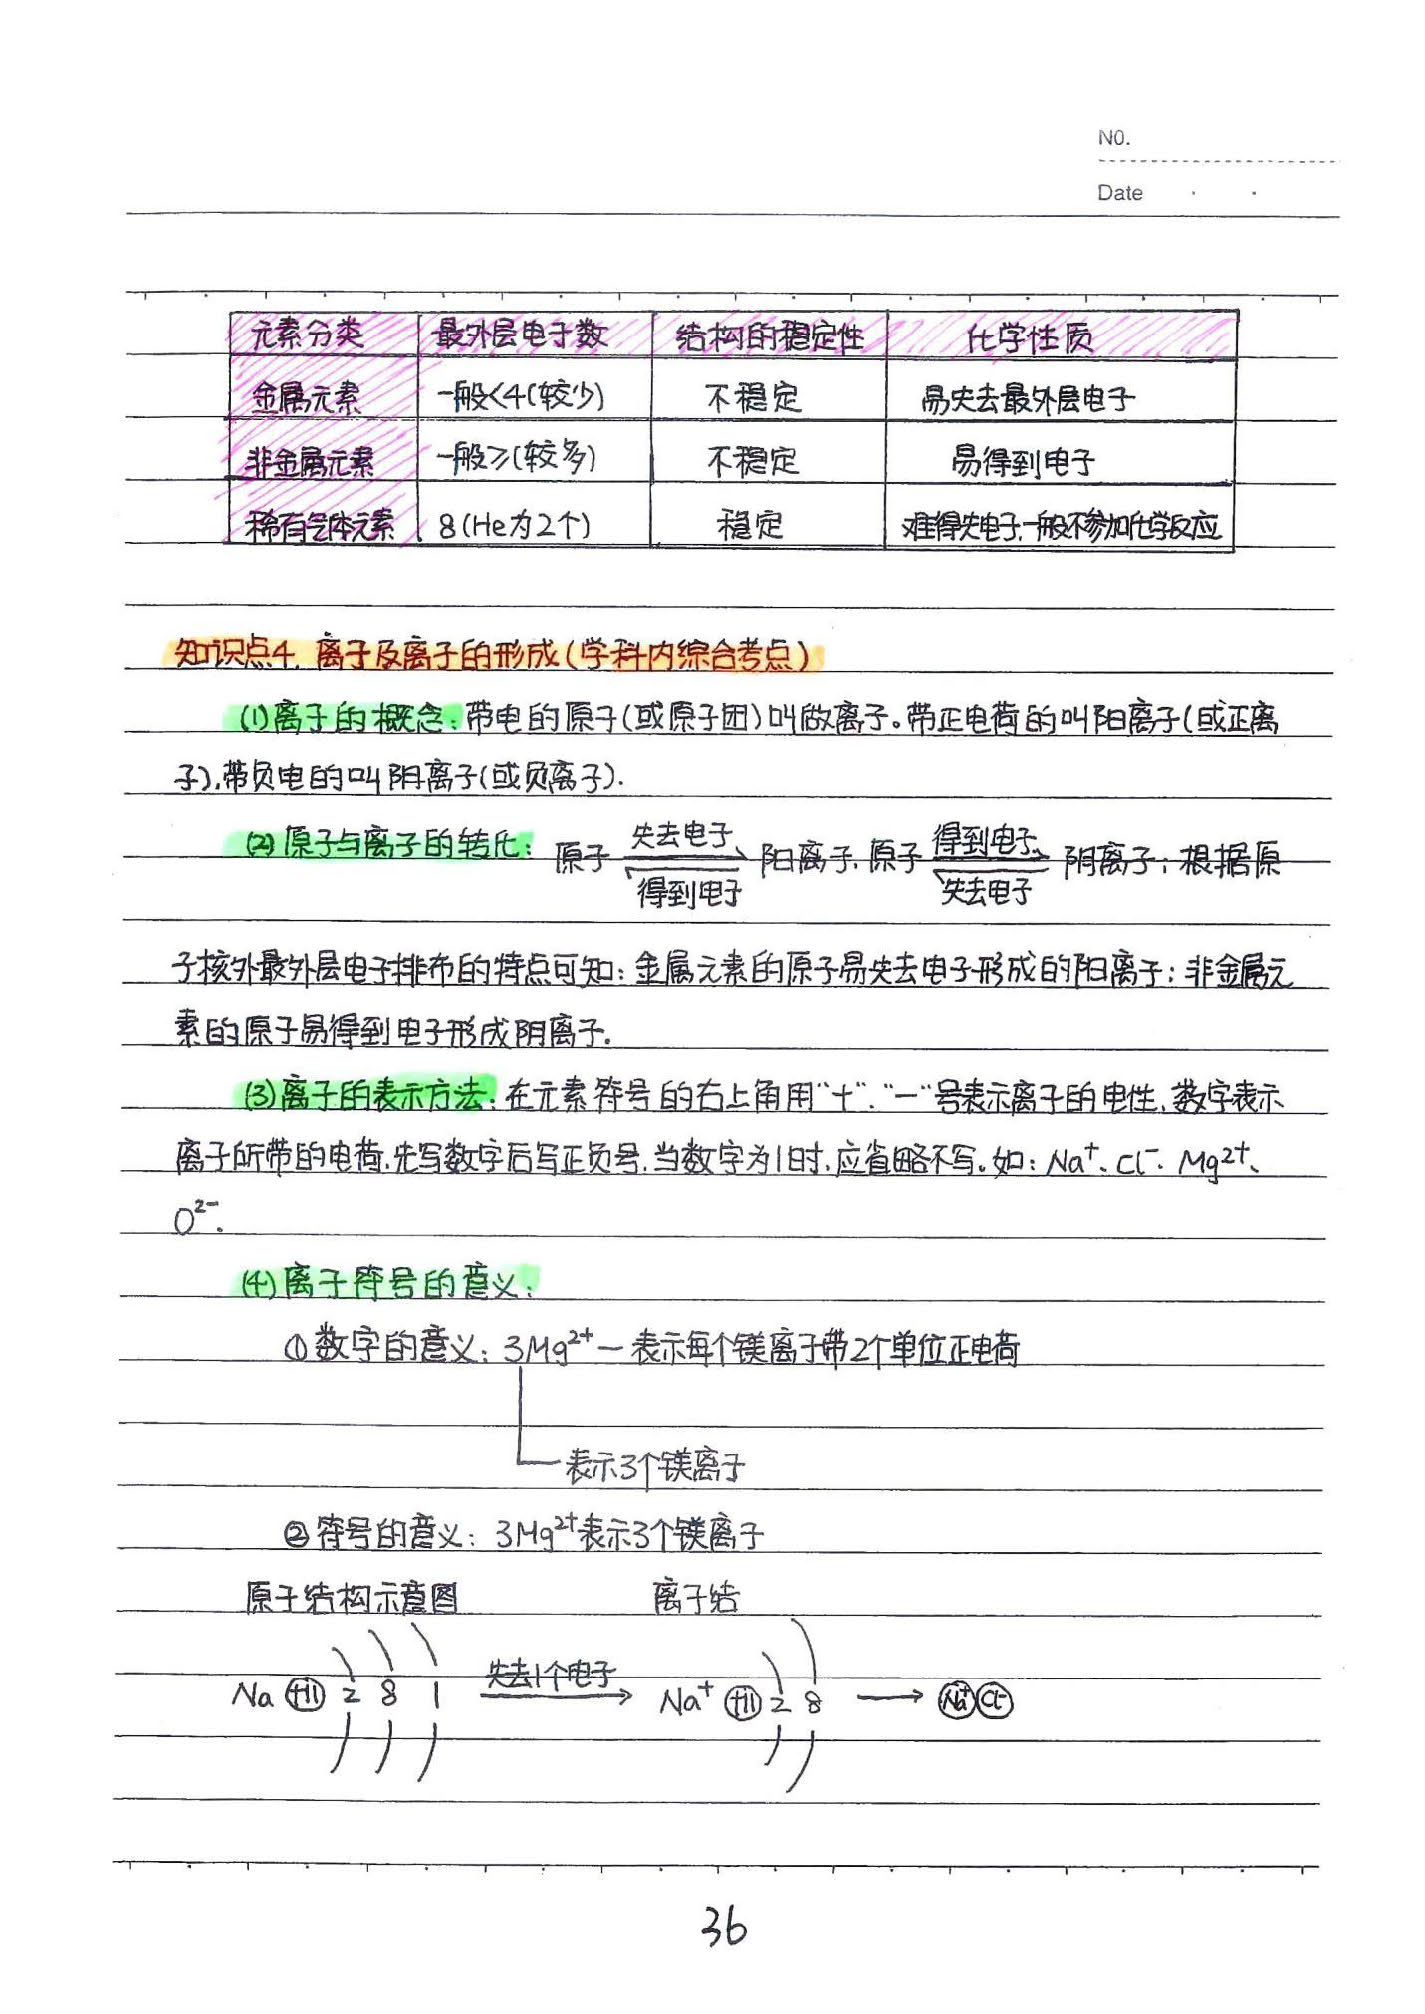 NO.
Date
元素分类 最外层电子数 结构的稳定性 化学性质
金属元素 一般<4(较少) 不稳定 易失去最外层电子
非金属元素 一般≥(较多) 不稳定 易得到电子
稀有气体元素 8(He为2个) 稳定 难得失电子.一般不参加化学反应
知识点4. 离子及离子的形成(学科内综合考点)
(1)离子的概念:带电的原子(或原子团)叫做离子。带正电荷的叫阳离子(或正离
子),带负电的叫阴离子(或负离子).
(2)原子与离子的转化: 原子 失去电子 得到电子 阳离子.原子 得到电子 失去电子 阴离子;根据原
子核外最外层电子排布的特点可知:金属元素的原子易失去电子形成的阳离子;非金属元
素的原子易得到电子形成阴离子.
(3)离子的表示方法:在元素符号的右上角用"+"、"一"号表示离子的电性,数字表示
离子所带的电荷.先写数字后写正负号,当数字为1时,应省略不写。如:Na⁺、Cl⁻、Mg²⁺、
O²⁻.
(4)离子符号的意义:
①数字的意义:3Mg²⁺—表示每个镁离子带2个单位正电荷
表示3个镁离子
②符号的意义:3Mg²⁺表示3个镁离子
原子结构示意图 离子结
Na +11 2 8 1 失去1个电子 Na⁺ +11 2 8 → Na⁺ Cl⁻
36